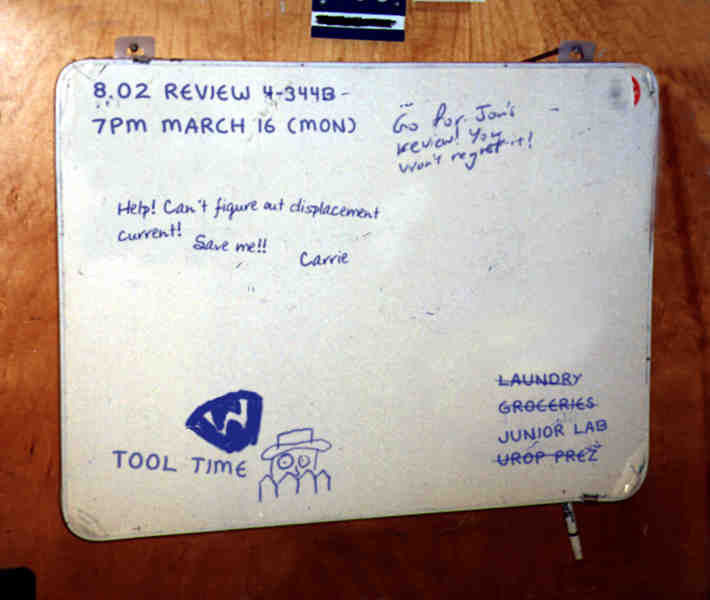 8.02 REVIEW 4-344B -
7PM MARCH 16 (MON)
Go for Jon's
review! You
won't regret it!
Help! Can't figure out displacement
current!
Save me!!
Carrie
W
TOOL TIME
LAUNDRY
GROCERIES
JUNIOR LAB
UROP PREZ